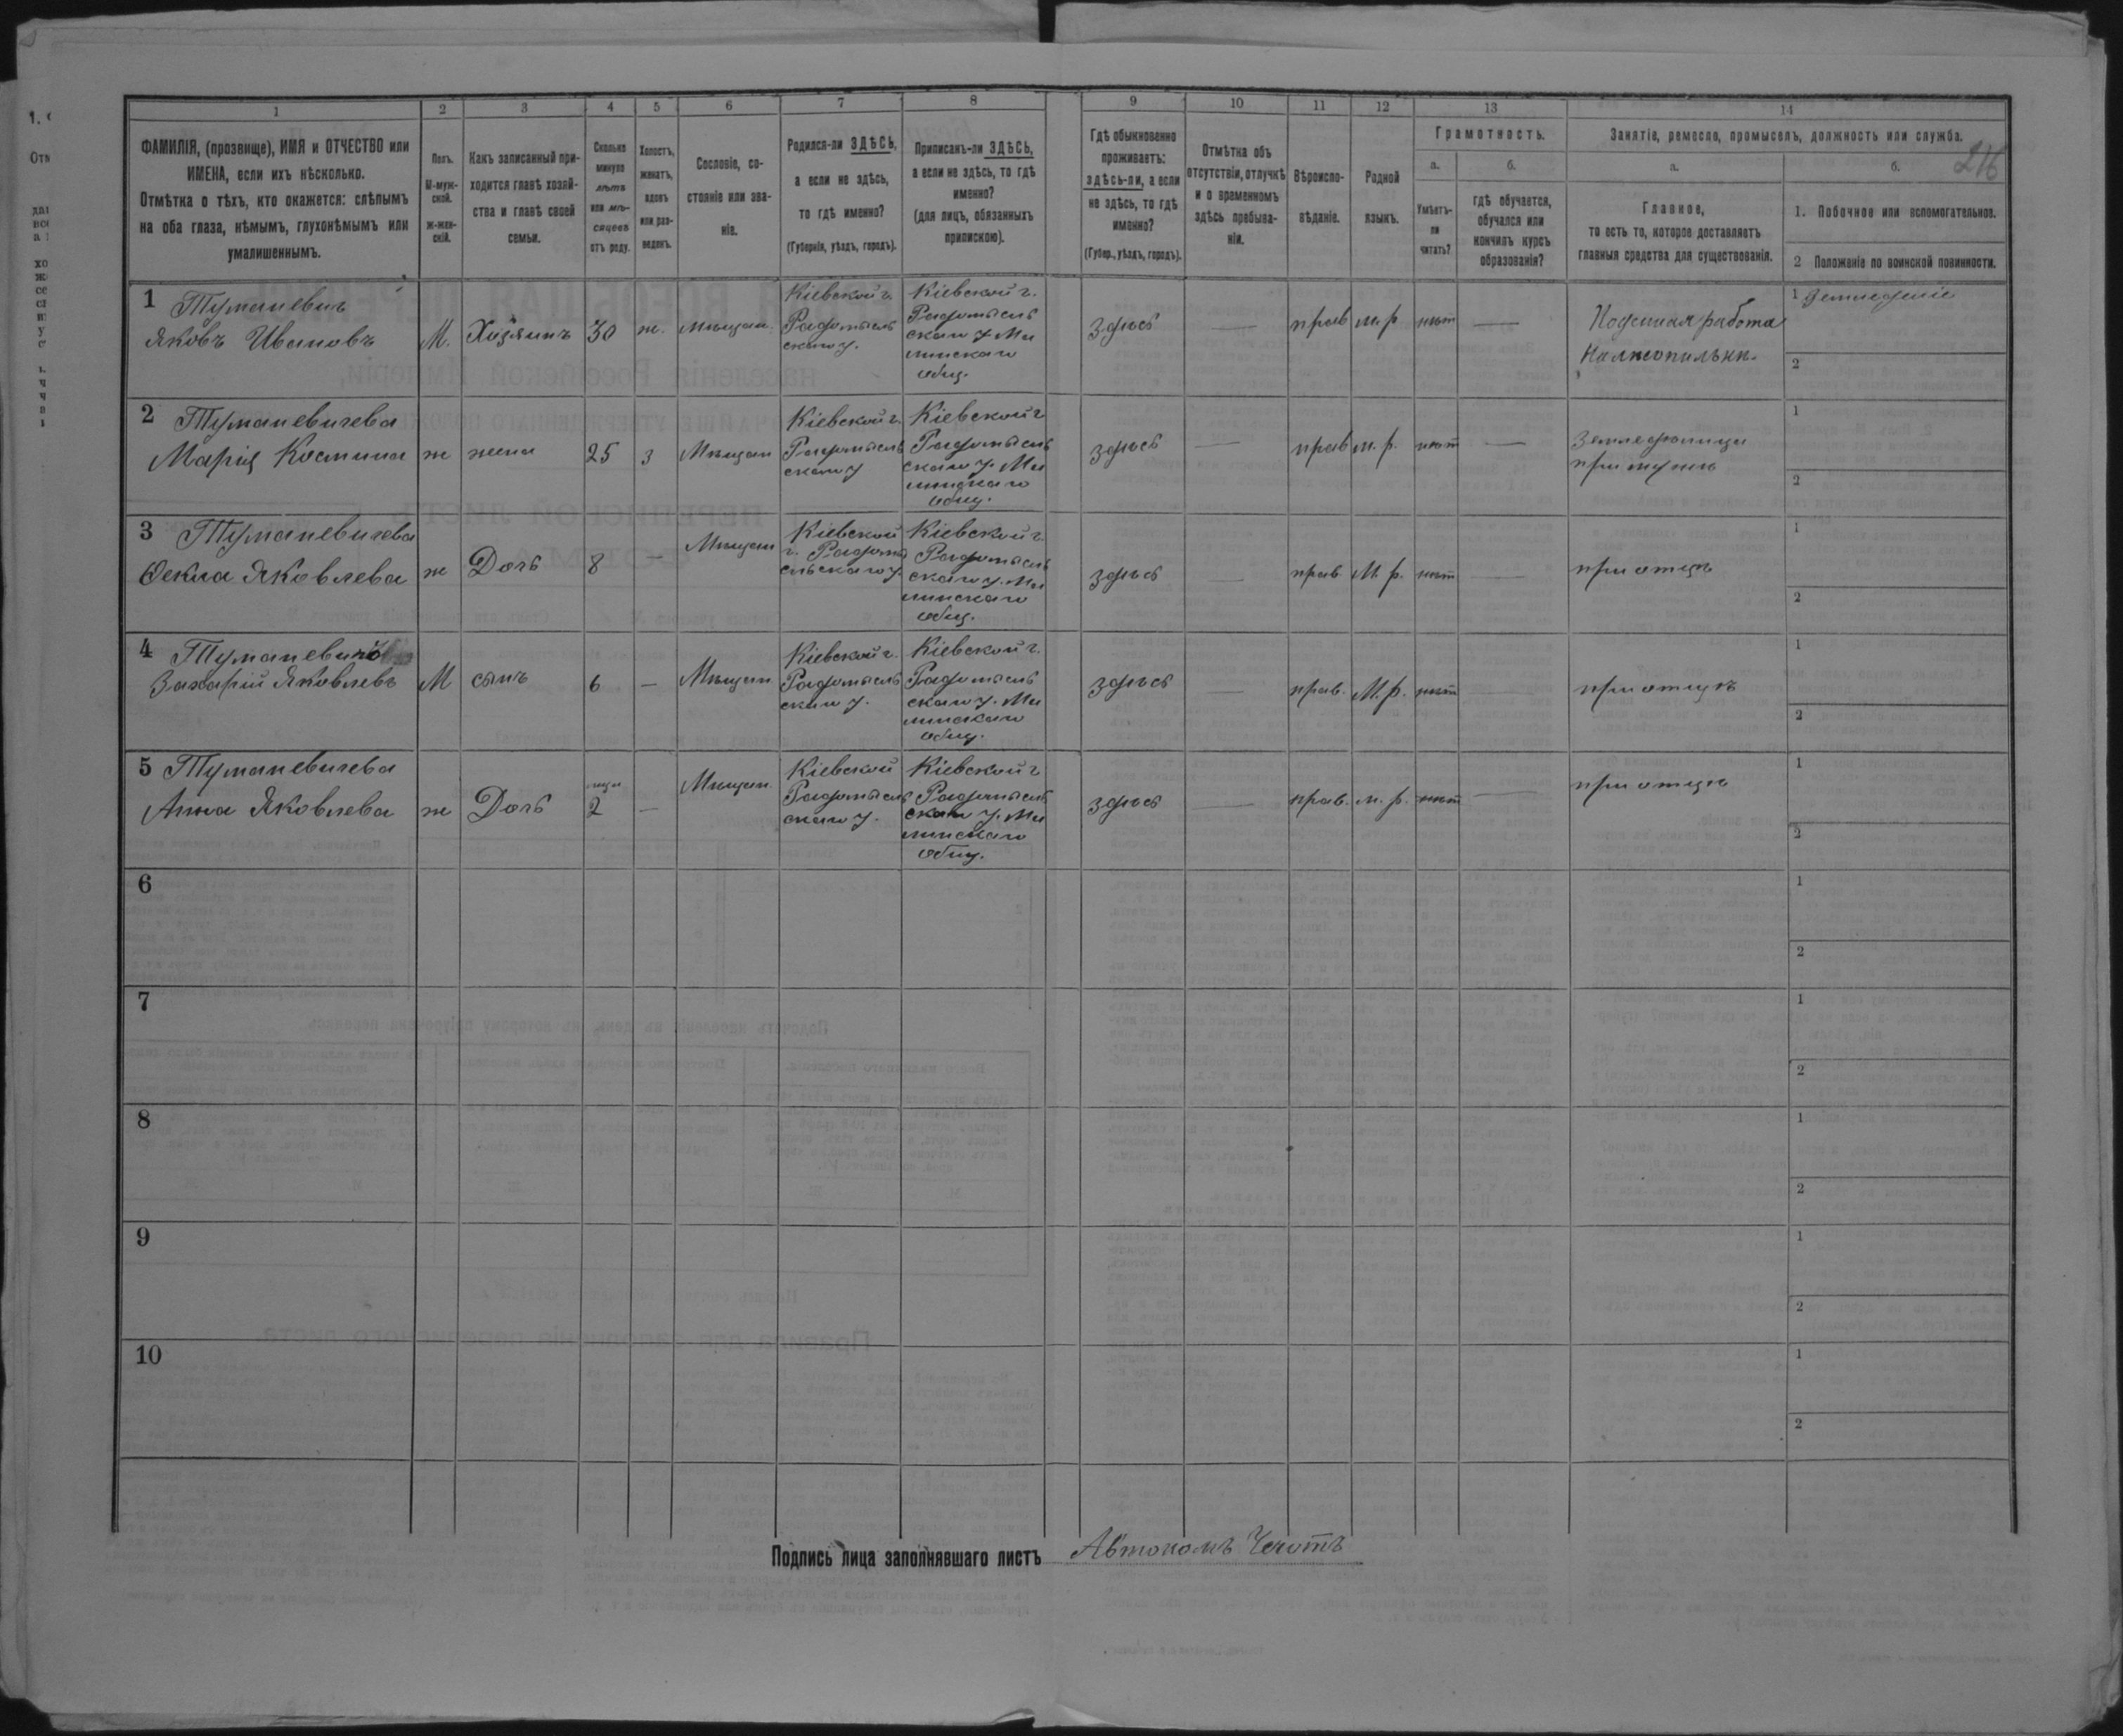 1 2 3 4 5 6 7 8 9 10 11 12 13 14
216
ФАМИЛІЯ, (прозвище), ИМЯ и ОТЧЕСТВО или
ИМЕНА, если ихъ нѣсколько.
Отмѣтка о тѣхъ, кто окажется: слѣпымъ
на оба глаза, нѣмымъ, глухонѣмымъ или
умалишеннымъ.
Полъ.
М-муж-
ской.
ж-жен-
скій.
Какъ записанный при-
ходится главѣ хозяй-
ства и главѣ своей
семьи.
Сколько
минуло
лѣтъ
или мѣ-
сяцевъ
отъ роду.
Холостъ,
женатъ,
вдовъ
или раз-
веденъ.
Сословіе, со-
стояніе или зва-
ніе.
Родился-ли ЗДѢСЬ,
а если не здѣсь,
то гдѣ именно?
(Губернія, уѣздъ, городъ).
Приписанъ-ли ЗДѢСЬ,
а если не здѣсь, то гдѣ
именно?
(для лицъ, обязанныхъ
припискою).
Гдѣ обыкновенно
проживаетъ:
здѣсь-ли, а если
не здѣсь, то гдѣ
именно?
(Губер., уѣздъ, городъ).
Отмѣтка объ
отсутствіи, отлучкѣ
и о временномъ
здѣсь пребыва-
ніи.
Вѣроиспо-
вѣданіе.
Родной
языкъ.
Грамотность.
а.
Умѣетъ-
ли
читать?
б.
гдѣ обучается,
обучался или
кончилъ курсъ
образованія?
Занятіе, ремесло, промыселъ, должность или служба.
а.
Главное,
то есть то, которое доставляетъ
главныя средства для существованія.
б.
1. Побочное или вспомогательное.
2 Положеніе по воинской повинности.
1 Туманевич
Яковъ Ивановъ
М.
Хозяинъ
30
ж.
мѣщан.
Кіевской г.
Радомысль
скаго у.
Кіевской г.
Радомысль
скаго у. Ма
линскаго
общ.
здѣсь
—
прав
м. р
нѣт
—
Поденная работа
1 Земледѣліе
2
2 Туманевичева
Марія Космина
ж
жена
25
з
Мѣщан
Кіевской г.
Радомысль
скаго у
Кіевской г
Радомысль
скаго у. Ма
линскаго
общ.
здѣсь
—
прав
м. р.
нѣт
—
при мужѣ
1
2
3 Туманевичева
Ѳекла Яковлева
ж
Дочь
8
—
Мѣщан
Кіевской
г. Радомы
сльскаго у
Кіевской г.
Радомысль
скаго у. Ма
линскаго
общ.
здѣсь
—
прав.
М. р.
нѣт
—
при отцѣ
1
2
4
Захарій Яковлевъ
М
сынъ
6
—
Мѣщан
Кіевской г.
Радомысль
скаго у.
Кіевской г.
Радомысль
скаго у. Ма
линскаго
общ.
здѣсь
—
прав.
М. р.
нѣт
—
при отцѣ
1
2
5 Туманевичева
Анна Яковлева
ж
Дочь
2
—
Мѣщан.
Кіевской
Радомысль
скаго у.
Кіевской г
Радомысль
скаго у. Ма
линскаго
общ.
здѣсь
—
прав.
м. р.
нѣт
—
при отцѣ
1
2
6
1
2
7
1
2
8
1
2
9
1
2
10
1
2
Подпись лица заполнявшаго листъ Автономъ